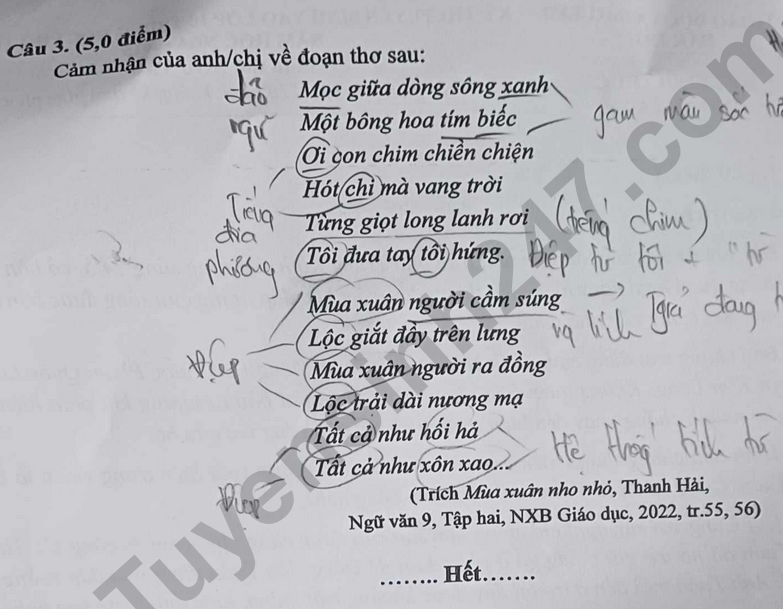 Câu 3. (5,0 điểm)
Cảm nhận của anh/chị về đoạn thơ sau:
đảo ngữ
Mọc giữa dòng sông xanh
Một bông hoa tím biếc
gam màu sắc
Ơi con chim chiền chiện
Hót chi mà vang trời
Tiếng địa phương
Từng giọt long lanh rơi
(tiếng chim)
Tôi đưa tay tôi hứng.
Điệp từ tôi
Mùa xuân người cầm súng
Lộc giắt đầy trên lưng
Điệp
Mùa xuân người ra đồng
Lộc trải dài nương mạ
Tất cả như hối hả
Tất cả như xôn xao...
Điệp
(Trích Mùa xuân nho nhỏ, Thanh Hải,
Ngữ văn 9, Tập hai, NXB Giáo dục, 2022, tr.55, 56)
........ Hết.......
Tuyensinh247.com